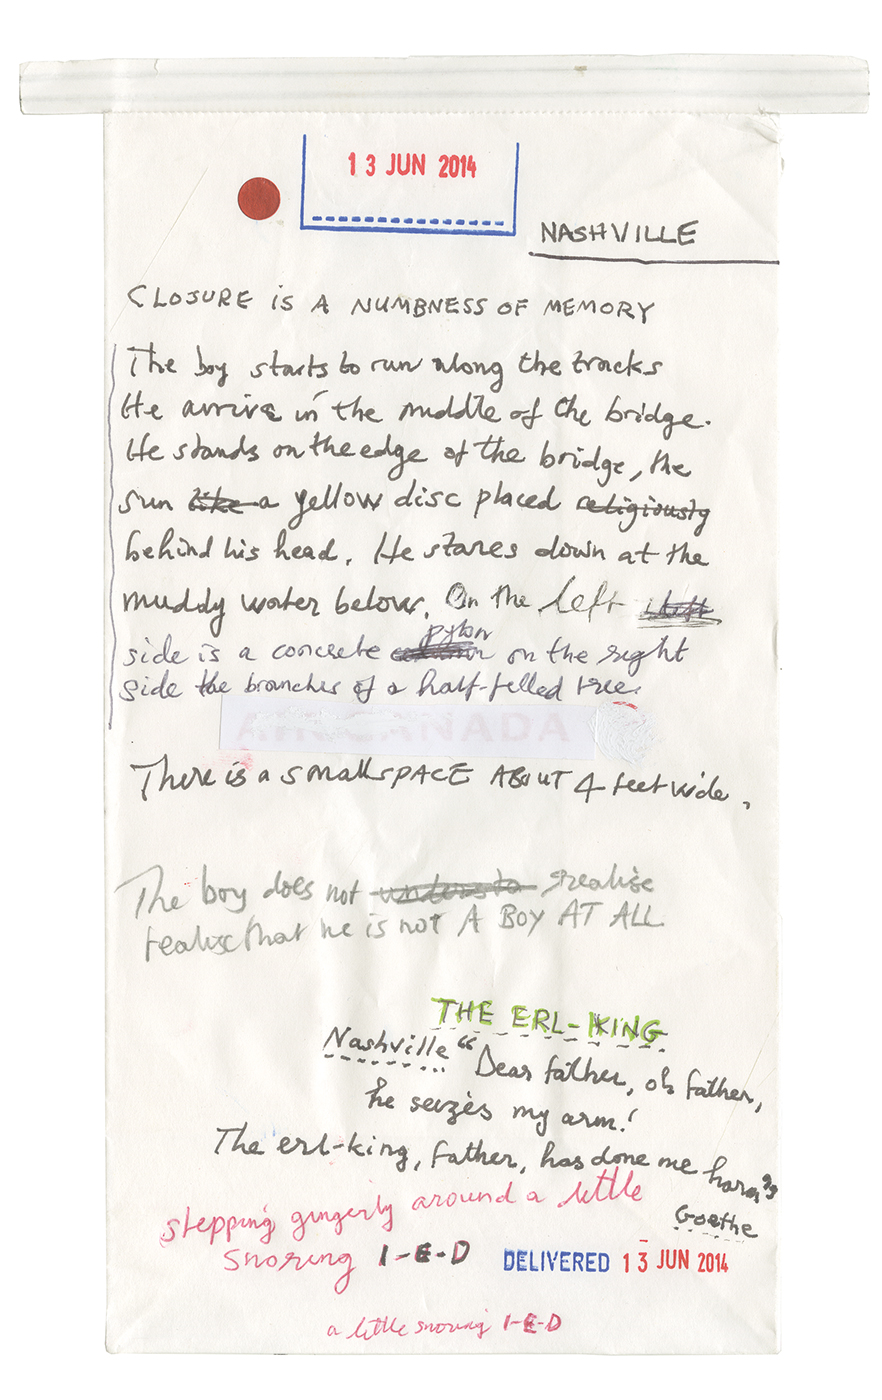 13 JUN 2014
NASHVILLE
CLOSURE IS A NUMBNESS OF MEMORY
The boy starts to run along the tracks
He arrive in the middle of the bridge.
He stands on the edge of the bridge, the
sun like a yellow disc placed religiously
behind his head. He stares down at the
muddy water below. On the left
side is a concrete pylon on the right
side the branches of a half-felled tree.
AIR CANADA
There is a small SPACE ABOUT 4 feet wide.
The boy does not understa realise
realise that he is not A BOY AT ALL
THE ERL-KING
Nashville "Dear father, oh father,
he seizes my arm!
The erl-king, father, has done me harm"
Goethe
stepping gingerly around a little
snoring I-E-D
DELIVERED 13 JUN 2014
a little snoring I-E-D